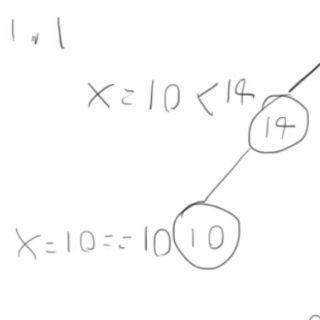 1.1
x=10<14
14
x=10==10
10